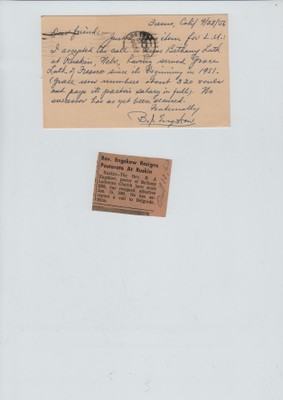 Fresno, Calif 9/28/56
Dear friend:
Just an item for L.H:
I accepted the call to Bethany Luth
at Ruskin, Nebr, having served Grace
Luth, of Fresno since its beginning in 1951.
(Grace now numbers about 320 souls
and pays its pastor's salary in full). No
successor has as yet been secured.
Fraternally
B.J. Engskow
Rev. Engskow Resigns
Pastorate At Ruskin
Ruskin—The Rev. B. J.
Engskow, pastor of Bethany
Lutheran Church here since
1956, has resigned effective
Jan. 15, 1961. He has ac-
cepted a call to Belgrade,